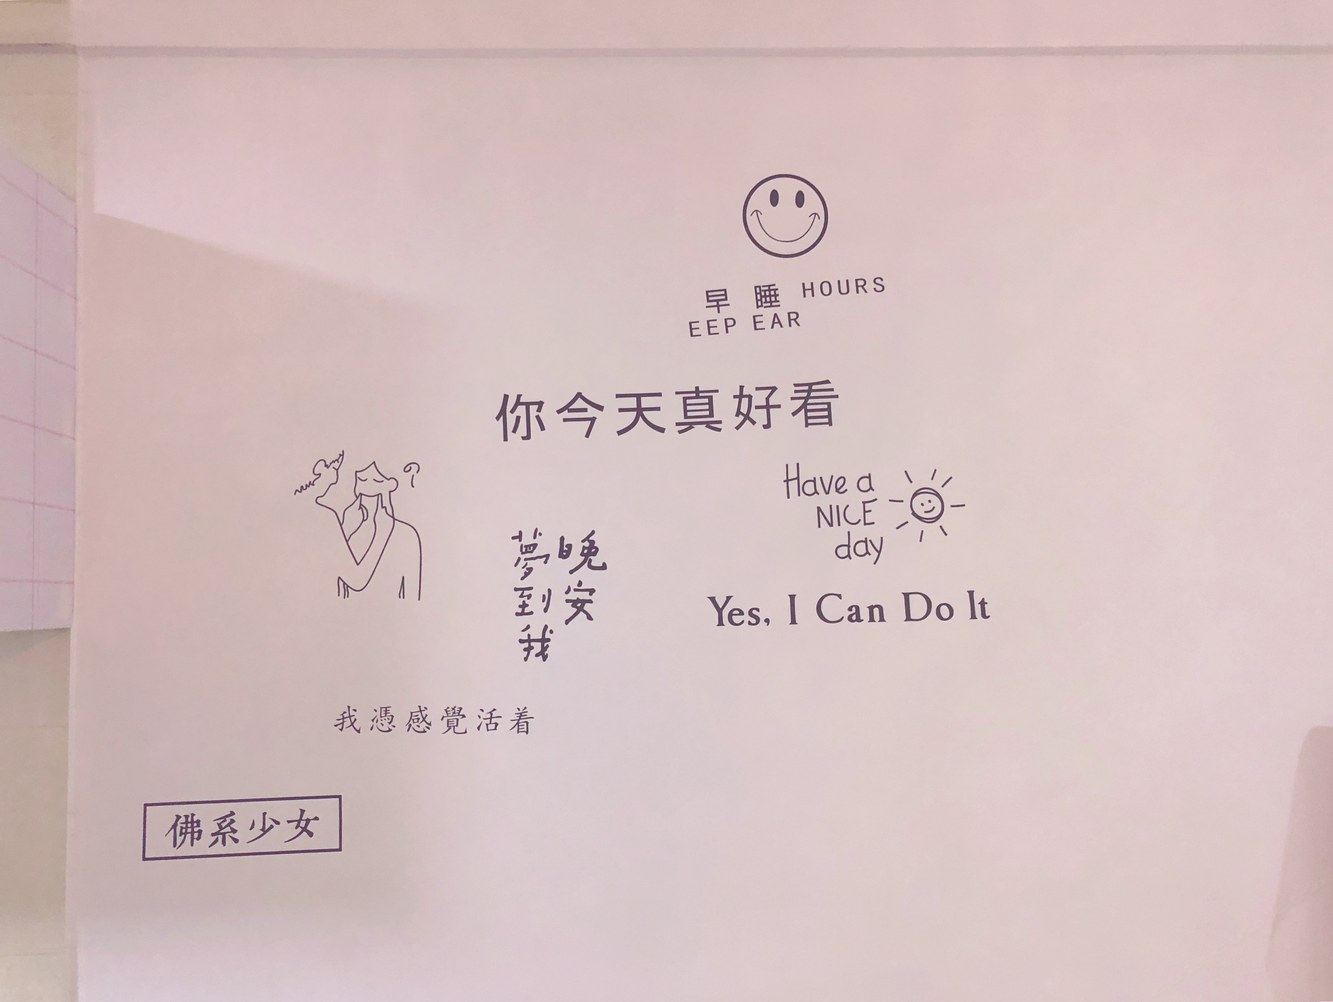 早睡 HOURS
EEP EAR
你今天真好看
Have a
NICE
day
晚安
夢到我
Yes, I Can Do It
我憑感覺活着
佛系少女